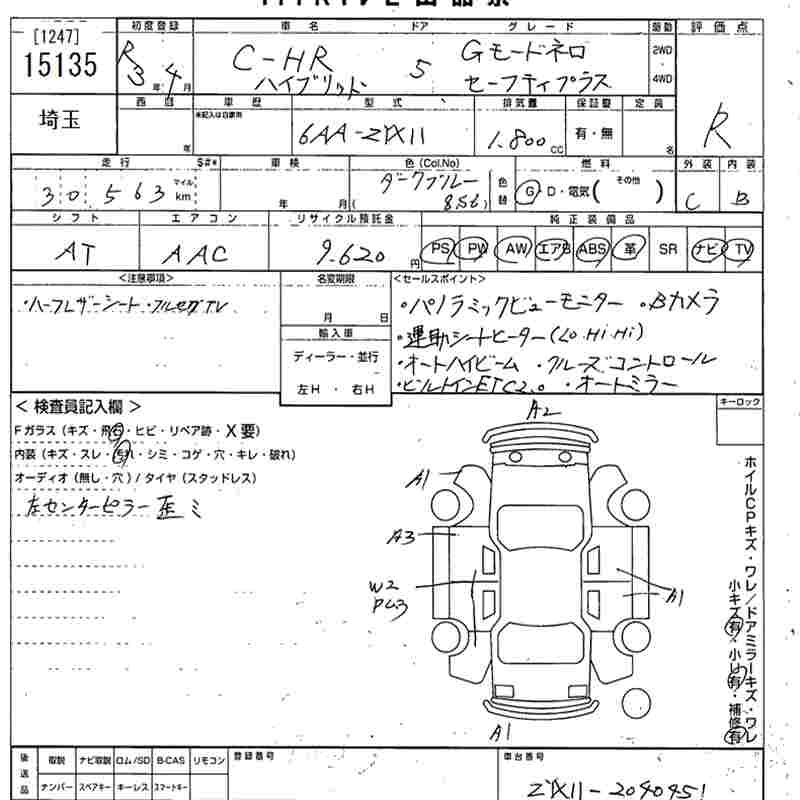 [1247]
15135
初度登録
車名
ドア
グレード
駆動
評価点
R 3年 4月
C-HR
ハイブリット
5
Gモードネロ
セーフティプラス
2WD
4WD
R
埼玉
車歴
型式
排気量
保証書
定員
未記入は自家用
年
6AA-ZYX11
1.800cc
有・無
名
走行
S#*
車検
色(Col.No)
燃料
外装
内装
30563
マイル
km
年 月
ダークブルー
(8S6)
色替
G・D・電気( その他 )
C
B
シフト
エアコン
リサイクル預託金
純正装備品
AT
AAC
9.620円
PS PW AW エアB ABS 革 SR ナビ TV
<注意事項>
・ハーフレザーシート・フルセグTV
名変期限
月 日
輸入車
ディーラー・並行
左H・右H
<セールスポイント>
・パノラミックビューモニター ・Bカメラ
・運助シートヒーター(Lo.Hi.Hi)
・オートハイビーム ・クルーズコントロール
・ビルトインETC2.0 ・オートミラー
キーロック
<検査員記入欄>
Fガラス(キズ・飛石・ヒビ・リペア跡・X要)
内装(キズ・スレ・汚れ・シミ・コゲ・穴・キレ・破れ)
オーディオ(無し・穴)/タイヤ(スタッドレス)
左センターピラー歪ミ
A2
A1
A3
W2
PG3
A1
A1
ホイルCPキズ・ワレ/ドアミラーキズ・ワレ
小キズ有・小凹有・補修有
後送品
取説
ナビ取説
ロム/SD
B-CAS
リモコン
ナンバー
スペアキー
キーレス
スマートキー
登録番号
車台番号
ZYX11-2090951